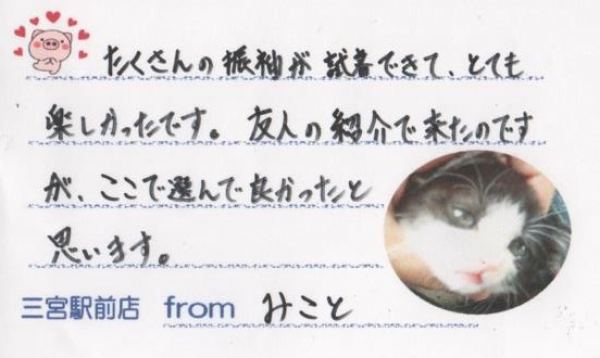 たくさんの振袖が試着できて、とても
楽しかったです。友人の紹介で来たのです
が、ここで選んで良かったと
思います。
三宮駅前店 from みこと